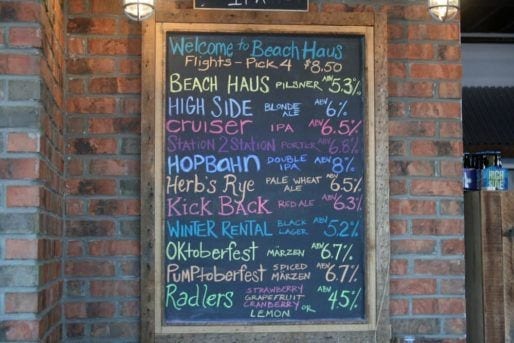 IPA
Welcome to Beach Haus
Flights - Pick 4 $8.50
BEACH HAUS PILSNER ABV 5.3%
HIGH SIDE BLONDE ALE ABV 6%
CRUISER IPA ABV 6.5%
STATION 2 STATION PORTER ABV 6.8%
HOPBAHN DOUBLE IPA ABV 8%
Herb's Rye PALE WHEAT ALE ABV 6.5%
KICK BACK RED ALE ABV 6.3%
WINTER RENTAL BLACK LAGER ABV 5.2%
OKtoberfest MÄRZEN ABV 6.7%
PUMPtoberfest SPICED MÄRZEN ABV 6.7%
Radlers STRAWBERRY GRAPEFRUIT CRANBERRY OR LEMON ABV 4.5%
HIGH SIDE